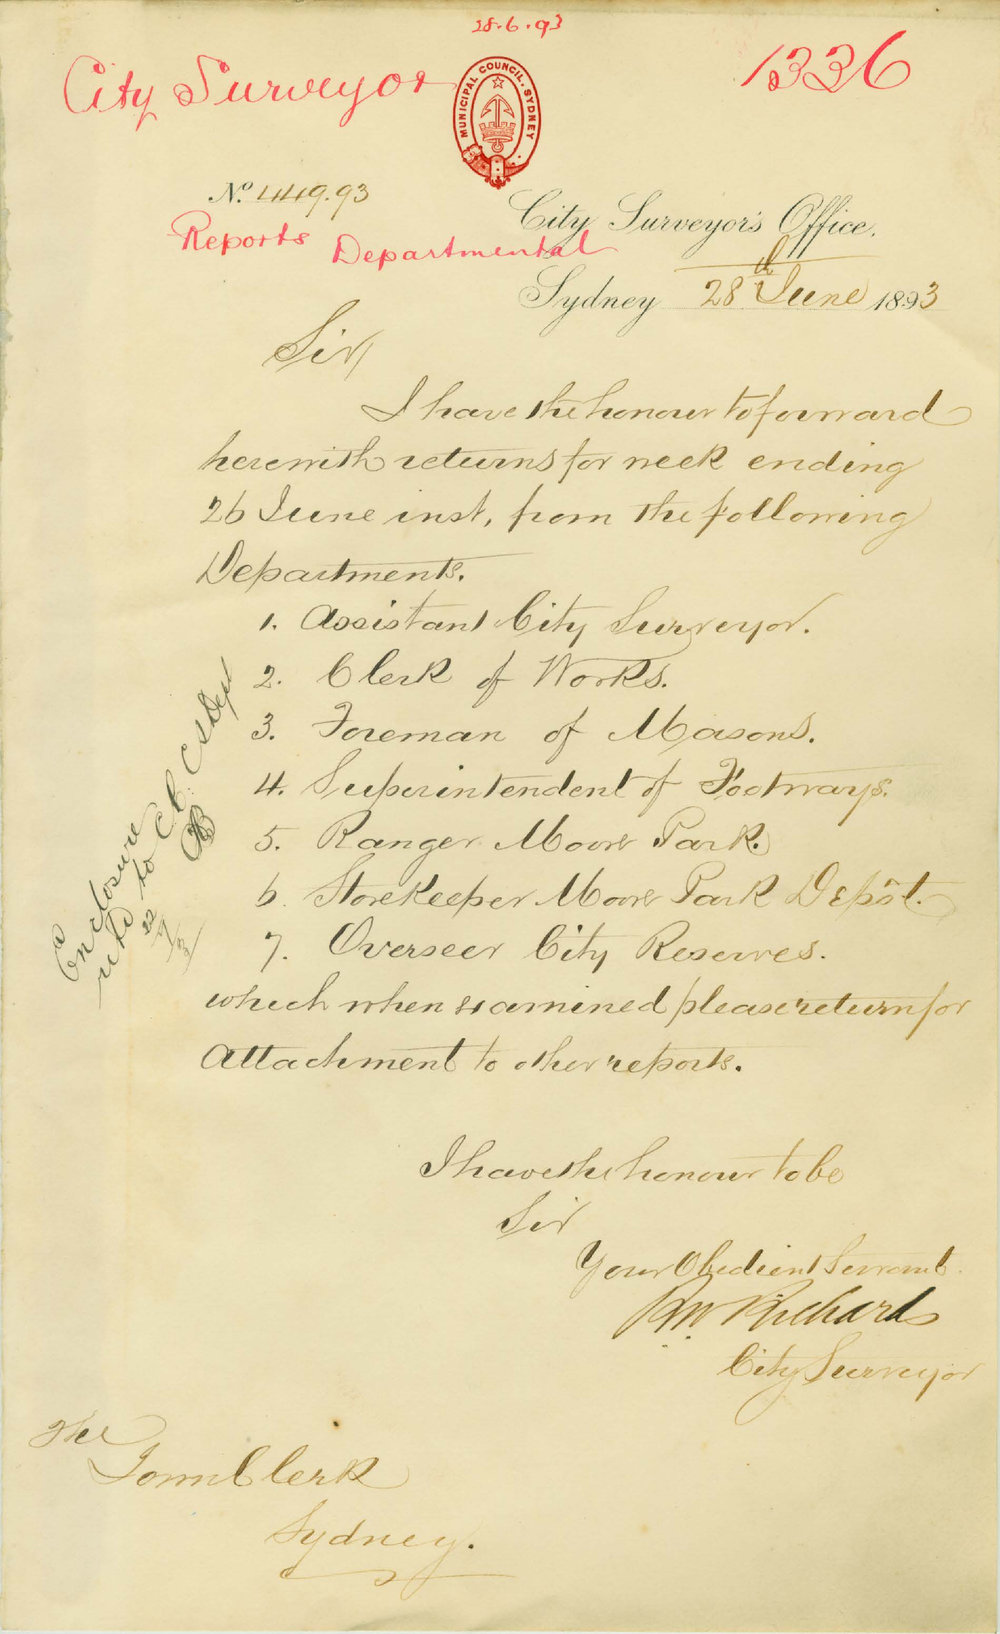 28.6.93
City Surveyor
1336
MUNICIPAL COUNCIL. SYDNEY
No. 449.93
City Surveyor's Office.
Reports Departmental
Sydney 28th June 1893
Sir,
I have the honour to forward
herewith returns for week ending
26 June inst, from the following
Departments.
1. Assistant City Surveyor.
2. Clerk of Works.
3. Foreman of Masons.
4. Superintendent of Footways.
5. Ranger Moore Park.
6. Storekeeper Moore Park Depôt.
7. Overseer City Reserves.
which when examined please return for
Attachment to other reports.
Enclosure
to C.C. CS Dept
22/7/93
I have the honour to be
Sir
Your Obedient Servant
RW Richards
City Surveyor
The
Town Clerk
Sydney.